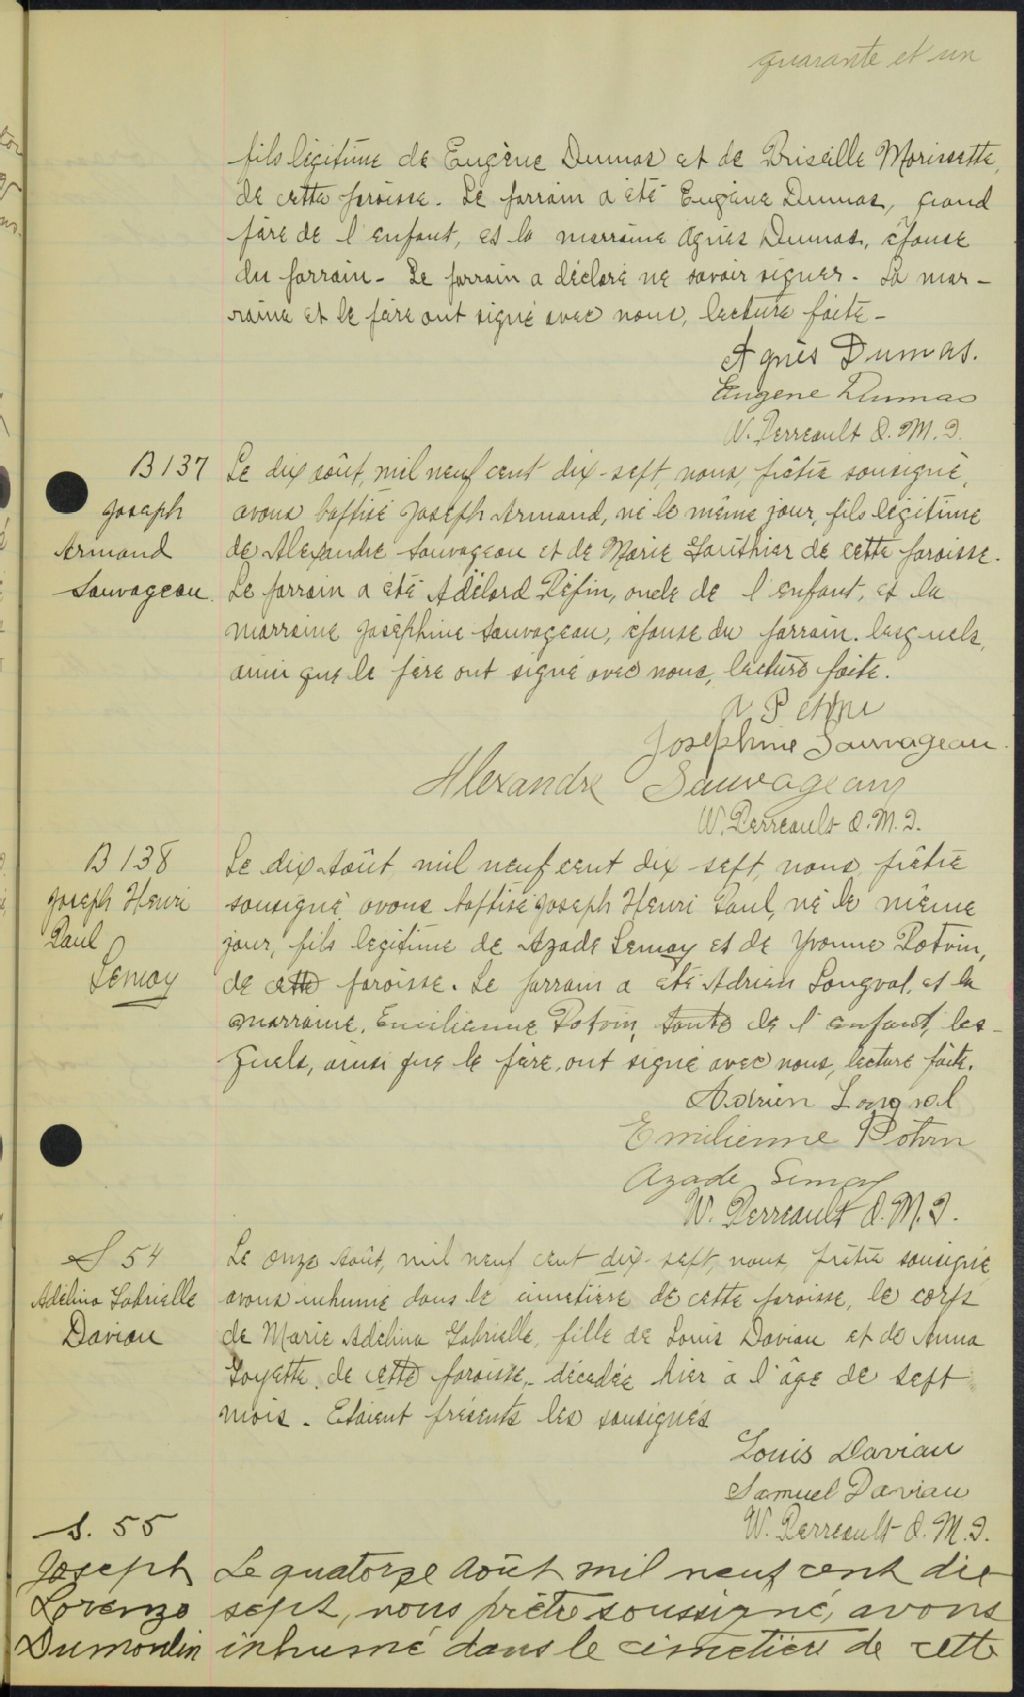 quarante et un
fils légitime de Eugène Dumas et de Priscille Morissette,
de cette paroisse. Le parrain a été Eugène Dumas, grand
père de l'enfant, et la marraine Agnès Dumas, épouse
du parrain. Le parrain a déclaré ne savoir signer. La mar-
raine et le père ont signé avec nous, lecture faite.
Agnès Dumas.
Eugene Dumas
W. Perreault O.M.I.
B 137
Joseph
Armand
Sauvageau
Le dix août, mil neuf cent dix-sept, nous, prêtre sousigné,
avons baptisé Joseph Armand, né le même jour, fils légitime
de Alexandre Sauvageau et de Marie Gauthier de cette paroisse.
Le parrain a été Adélard Pépin, oncle de l'enfant, et la
marraine Joséphine Sauvageau, épouse du parrain. lesquels,
ainsi que le père ont signé avec nous, lecture faite.
A
Josephine Sauvageau.
Alexandre Sauvageau
W. Perreault O.M.I.
B 138
Joseph Henri
Paul
Lemay
Le dix Août, mil neuf cent dix-sept, nous, prêtre
sousigné, avons baptisé Joseph Henri Paul, né le même
jour, fils legitime de Azade Lemay et de Yvonne Potvin,
de cette paroisse. Le parrain a été Adrien Longval, et la
marraine, Emilienne Potvin, tante de l'enfant, les-
quels, ainsi que le père, ont signé avec nous, lecture faite.
Adrien Longval
Emilienne Potvin
Azade Lemay
W. Perreault O.M.I.
S 54
Adélina Gabrielle
Daviau
Le onze Août, mil neuf cent dix-sept, nous, prêtre sousigné,
avons inhumé dans le cimetière de cette paroisse, le corps
de Marie Adélina Gabrielle, fille de Louis Daviau et de Anna
Goyette, de cette paroisse, décedée hier à l'âge de sept
mois. Etaient présents les sousignés
Louis Daviau
Samuel Daviau
W. Perreault O.M.I.
S. 55
Joseph
Lorenzo
Dumoulin
Le quatorze Août mil neuf cent dix
sept, nous prêtre soussigné, avons
inhumé dans le cimetière de cette